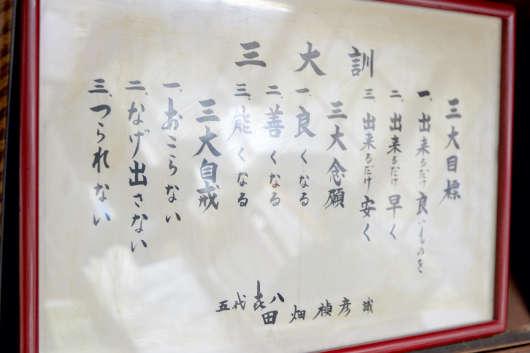 三大訓
三大目標
一、出来るだけ良いものを
二、出来るだけ早く
三、出来るだけ安く
三大念願
一、良くなる
二、善くなる
三、能くなる
三大自戒
一、おこらない
二、なげ出さない
三、つられない
五代 八 田 畑 禎彦